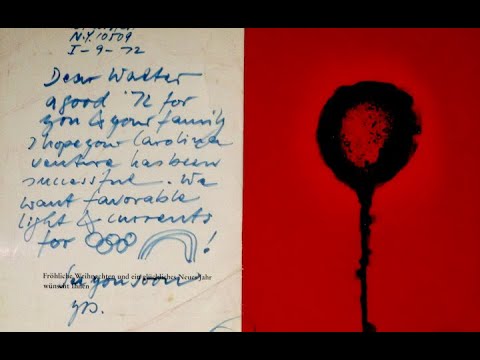 N.Y. 10509
I-9-72
Dear Walter
a good '72 for
you & your family
I hope your Carolina
venture has been
successful. We
want favorable
light & currents
for !
Fröhliche Weihnachten und ein glückliches Neues Jahr
wünscht Ihnen
you soon
yrs.